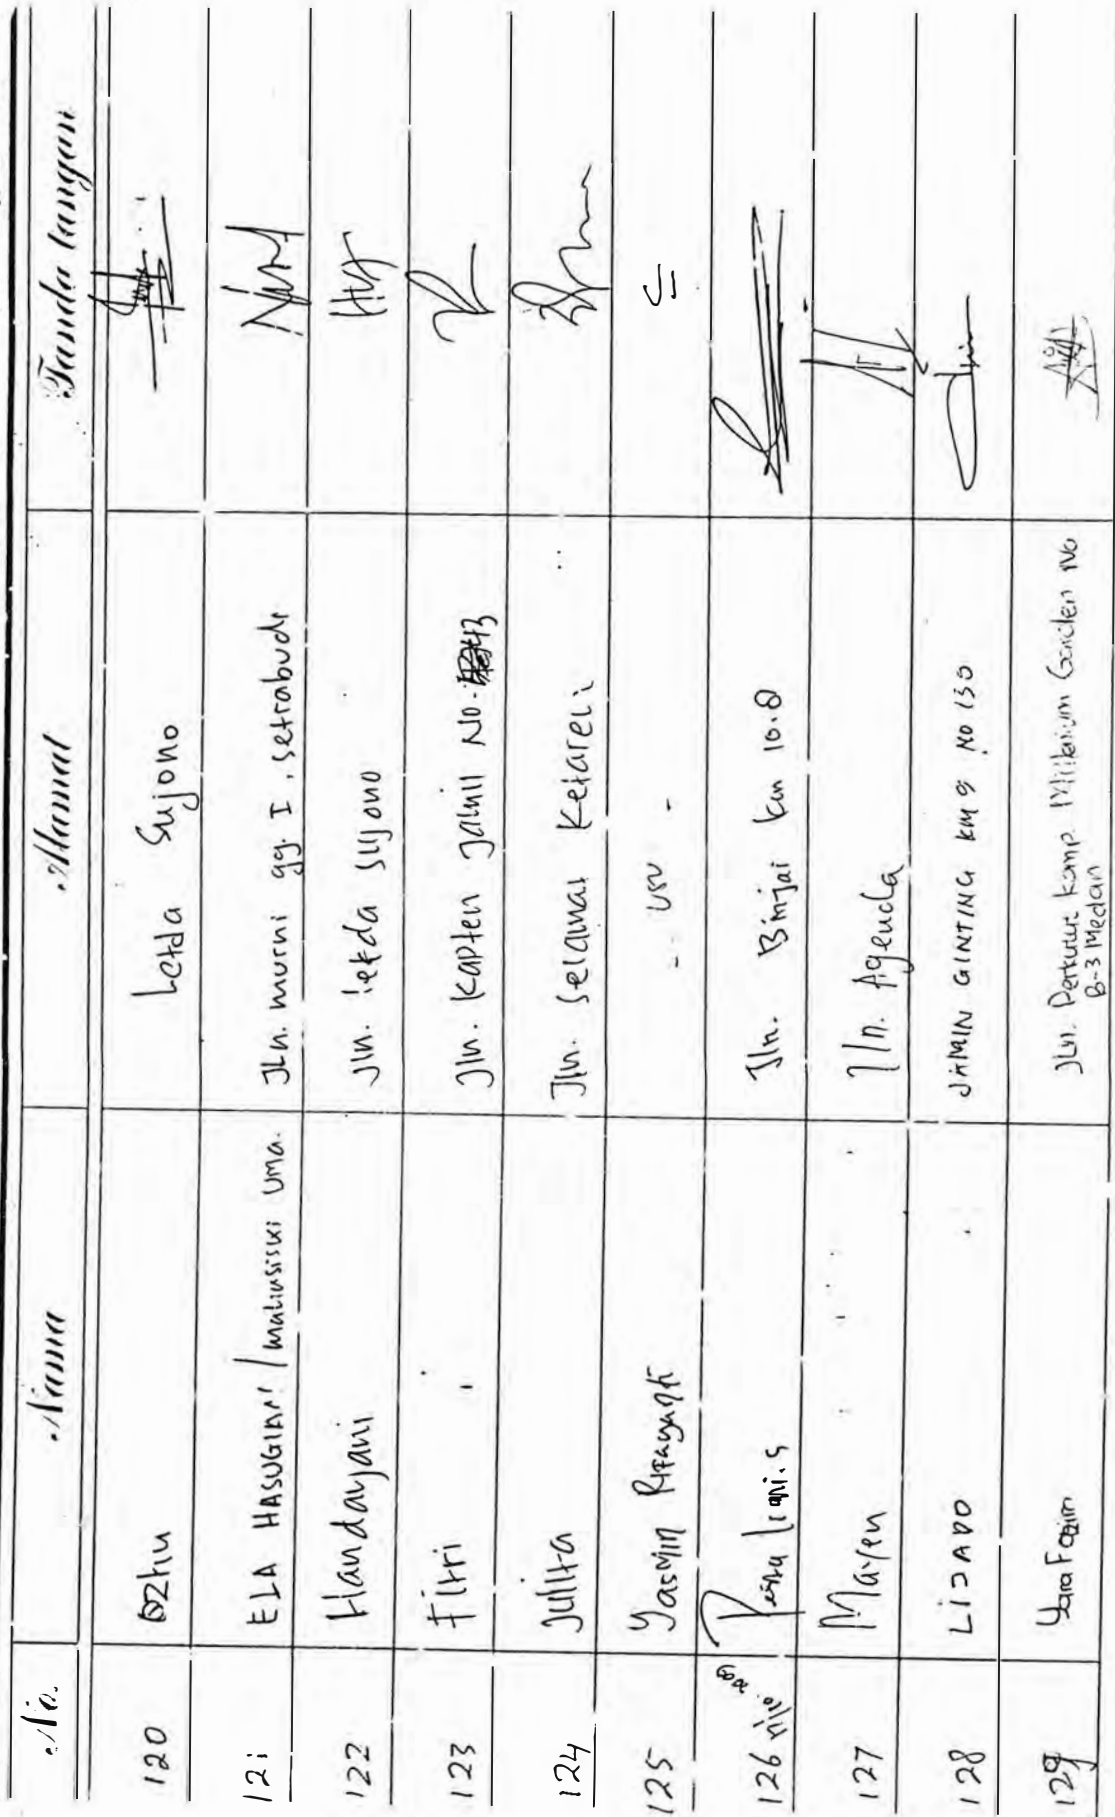 No. Nama Alamat Tanda tangan
120 Letda Sujono
121 ELA HASUGIAN / mahasiswi UMA. Jln. murni gg. I. setiabudi
122 Handayani Jln. letda sujono
123 Fitri Jln. Kapten Jamil No. 43
124 Julita Jln. Selamat Ketaren
125 Yasmin - USU -
126 Jln. Binjai km 10.8
127 Maren Jln. Agenda
128 LiJADO JAMIN GINTING KM 9 NO 130
129 Jln. Perkutut Komp. Millenium Garden No
B-3 Medan